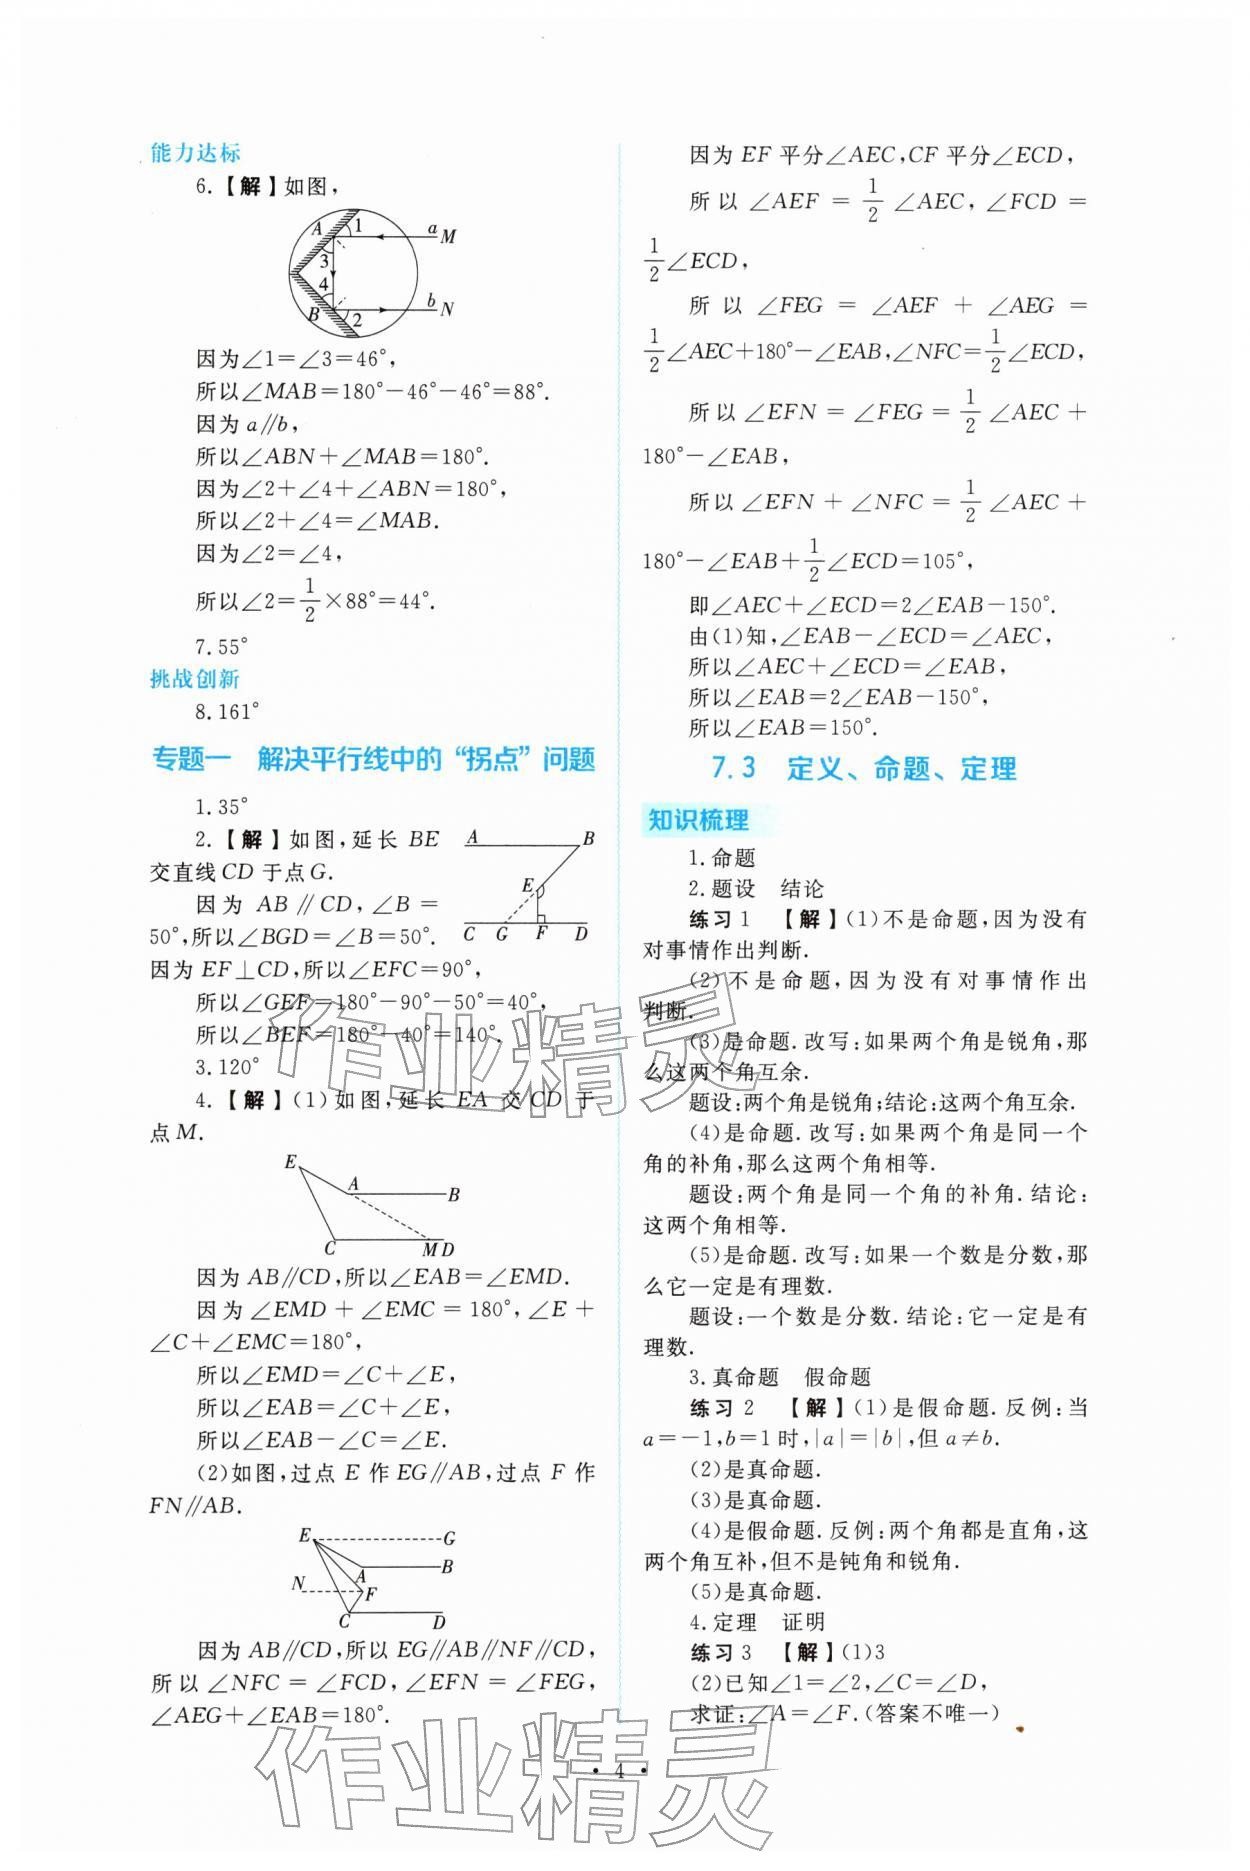 能力达标
6.【解】如图，
A 1 a M
3
4 b N
B 2
因为∠1=∠3=46°，
所以∠MAB=180°-46°-46°=88°.
因为a∥b，
所以∠ABN+∠MAB=180°.
因为∠2+∠4+∠ABN=180°，
所以∠2+∠4=∠MAB.
因为∠2=∠4，
所以∠2=1/2×88°=44°.
7.55°
挑战创新
8.161°
专题一 解决平行线中的“拐点”问题
1.35°
2.【解】如图，延长 BE
交直线CD于点G.
因为 AB∥CD，∠B=
50°，所以∠BGD=∠B=50°.
因为EF⊥CD，所以∠EFC=90°，
所以∠GEF=180°-90°-50°=40°，
所以∠BEF=180°-40°=140°.
A B
E
C G F D
3.120°
4.【解】(1)如图，延长 EA 交 CD 于
点M.
E
A B
C M D
因为AB∥CD，所以∠EAB=∠EMD.
因为∠EMD+∠EMC=180°，∠E+
∠C+∠EMC=180°，
所以∠EMD=∠C+∠E，
所以∠EAB=∠C+∠E，
所以∠EAB-∠C=∠E.
(2)如图，过点 E 作EG∥AB，过点 F 作
FN∥AB.
E G
A B
N F
C D
因为AB∥CD，所以EG∥AB∥NF∥CD，
所以∠NFC=∠FCD，∠EFN=∠FEG，
∠AEG+∠EAB=180°.
因为EF平分∠AEC，CF平分∠ECD，
所以∠AEF=1/2∠AEC，∠FCD=
1/2∠ECD，
所以∠FEG=∠AEF+∠AEG=
1/2∠AEC+180°-∠EAB，∠NFC=1/2∠ECD，
所以∠EFN=∠FEG=1/2∠AEC+
180°-∠EAB，
所以∠EFN+∠NFC=1/2∠AEC+
180°-∠EAB+1/2∠ECD=105°，
即∠AEC+∠ECD=2∠EAB-150°.
由(1)知，∠EAB-∠ECD=∠AEC，
所以∠AEC+∠ECD=∠EAB，
所以∠EAB=2∠EAB-150°，
所以∠EAB=150°.
7.3 定义、命题、定理
知识梳理
1.命题
2.题设 结论
练习1 【解】(1)不是命题，因为没有
对事情作出判断.
(2)不是命题，因为没有对事情作出
判断.
(3)是命题.改写:如果两个角是锐角，那
么这两个角互余.
题设:两个角是锐角;结论:这两个角互余.
(4)是命题.改写:如果两个角是同一个
角的补角，那么这两个角相等.
题设:两个角是同一个角的补角.结论:
这两个角相等.
(5)是命题.改写:如果一个数是分数，那
么它一定是有理数.
题设:一个数是分数.结论:它一定是有
理数.
3.真命题 假命题
练习2 【解】(1)是假命题.反例:当
a=-1，b=1时，|a|=|b|，但a≠b.
(2)是真命题.
(3)是真命题.
(4)是假命题.反例:两个角都是直角，这
两个角互补，但不是钝角和锐角.
(5)是真命题.
4.定理 证明
练习3 【解】(1)3
(2)已知∠1=∠2，∠C=∠D，
求证:∠A=∠F.(答案不唯一)
作业精灵
作业精灵
· 4 ·